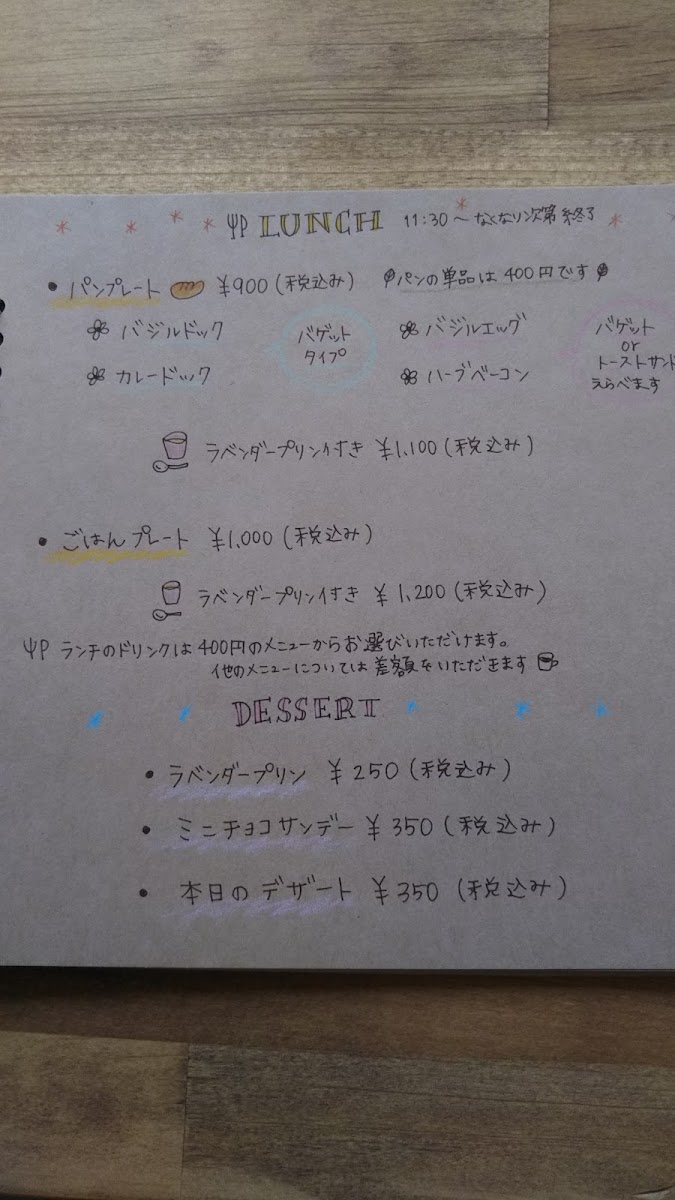 LUNCH 11:30～なくなり次第終了
・パンプレート ¥900(税込み) パンの単品は400円です
バジルドック バゲットタイプ バジルエッグ バゲット
or
カレードック ハーブベーコン トーストサンド
えらべます
ラベンダープリン付き ¥1,100(税込み)
・ごはんプレート ¥1,000(税込み)
ラベンダープリン付き ¥1,200(税込み)
ランチのドリンクは400円のメニューからお選びいただけます。
他のメニューについては差額をいただきます
DESSERT
・ラベンダープリン ¥250(税込み)
・ミニチョコサンデー ¥350(税込み)
・本日のデザート ¥350(税込み)